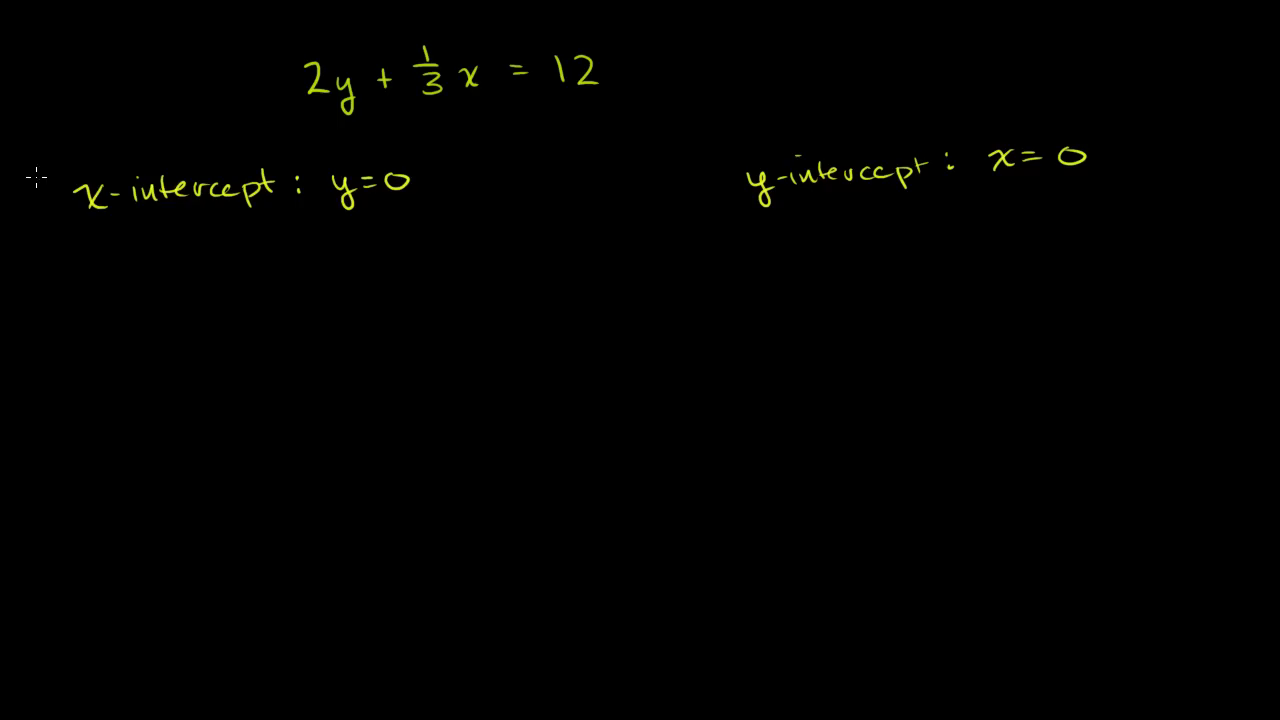 2y + 1/3 x = 12
x-intercept: y=0
y-intercept: x=0